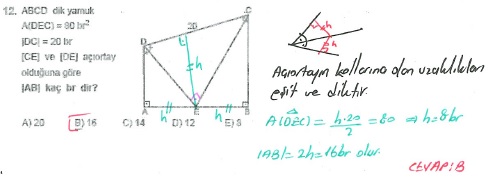 12. ABCD dik yamuk
A(DEC) = 80 br²
|DC| = 20 br
[CE] ve [DE] açıortay
olduğuna göre
|AB| kaç br dir?
A) 20 B) 16 C) 14 D) 12 E) 8
C
20
D
h
h
h
A E B
h
h
Açıortayın kollarına olan uzaklıkları
eşit ve diktir.
A(DEC) = h.20/2 = 80 ⇒ h=8br
|AB|= 2h=16br olur.
CEVAP:B